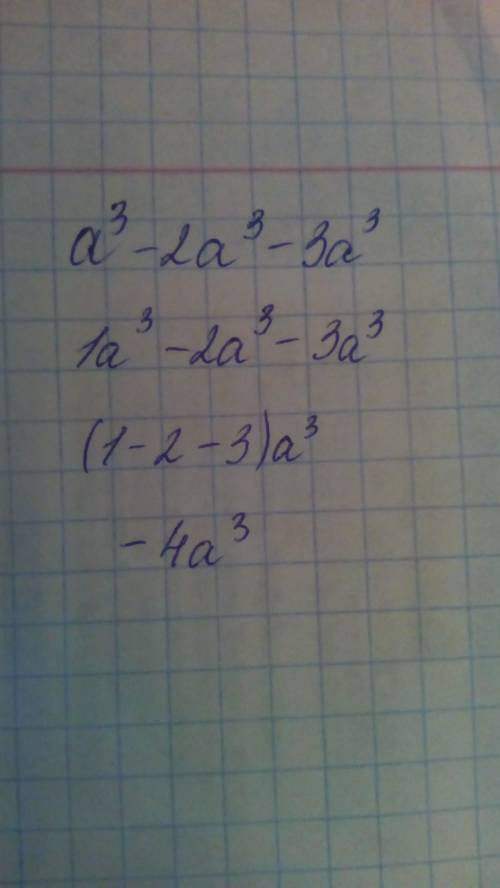 a³ - 2a³ - 3a³
1a³ - 2a³ - 3a³
(1 - 2 - 3)a³
- 4a³